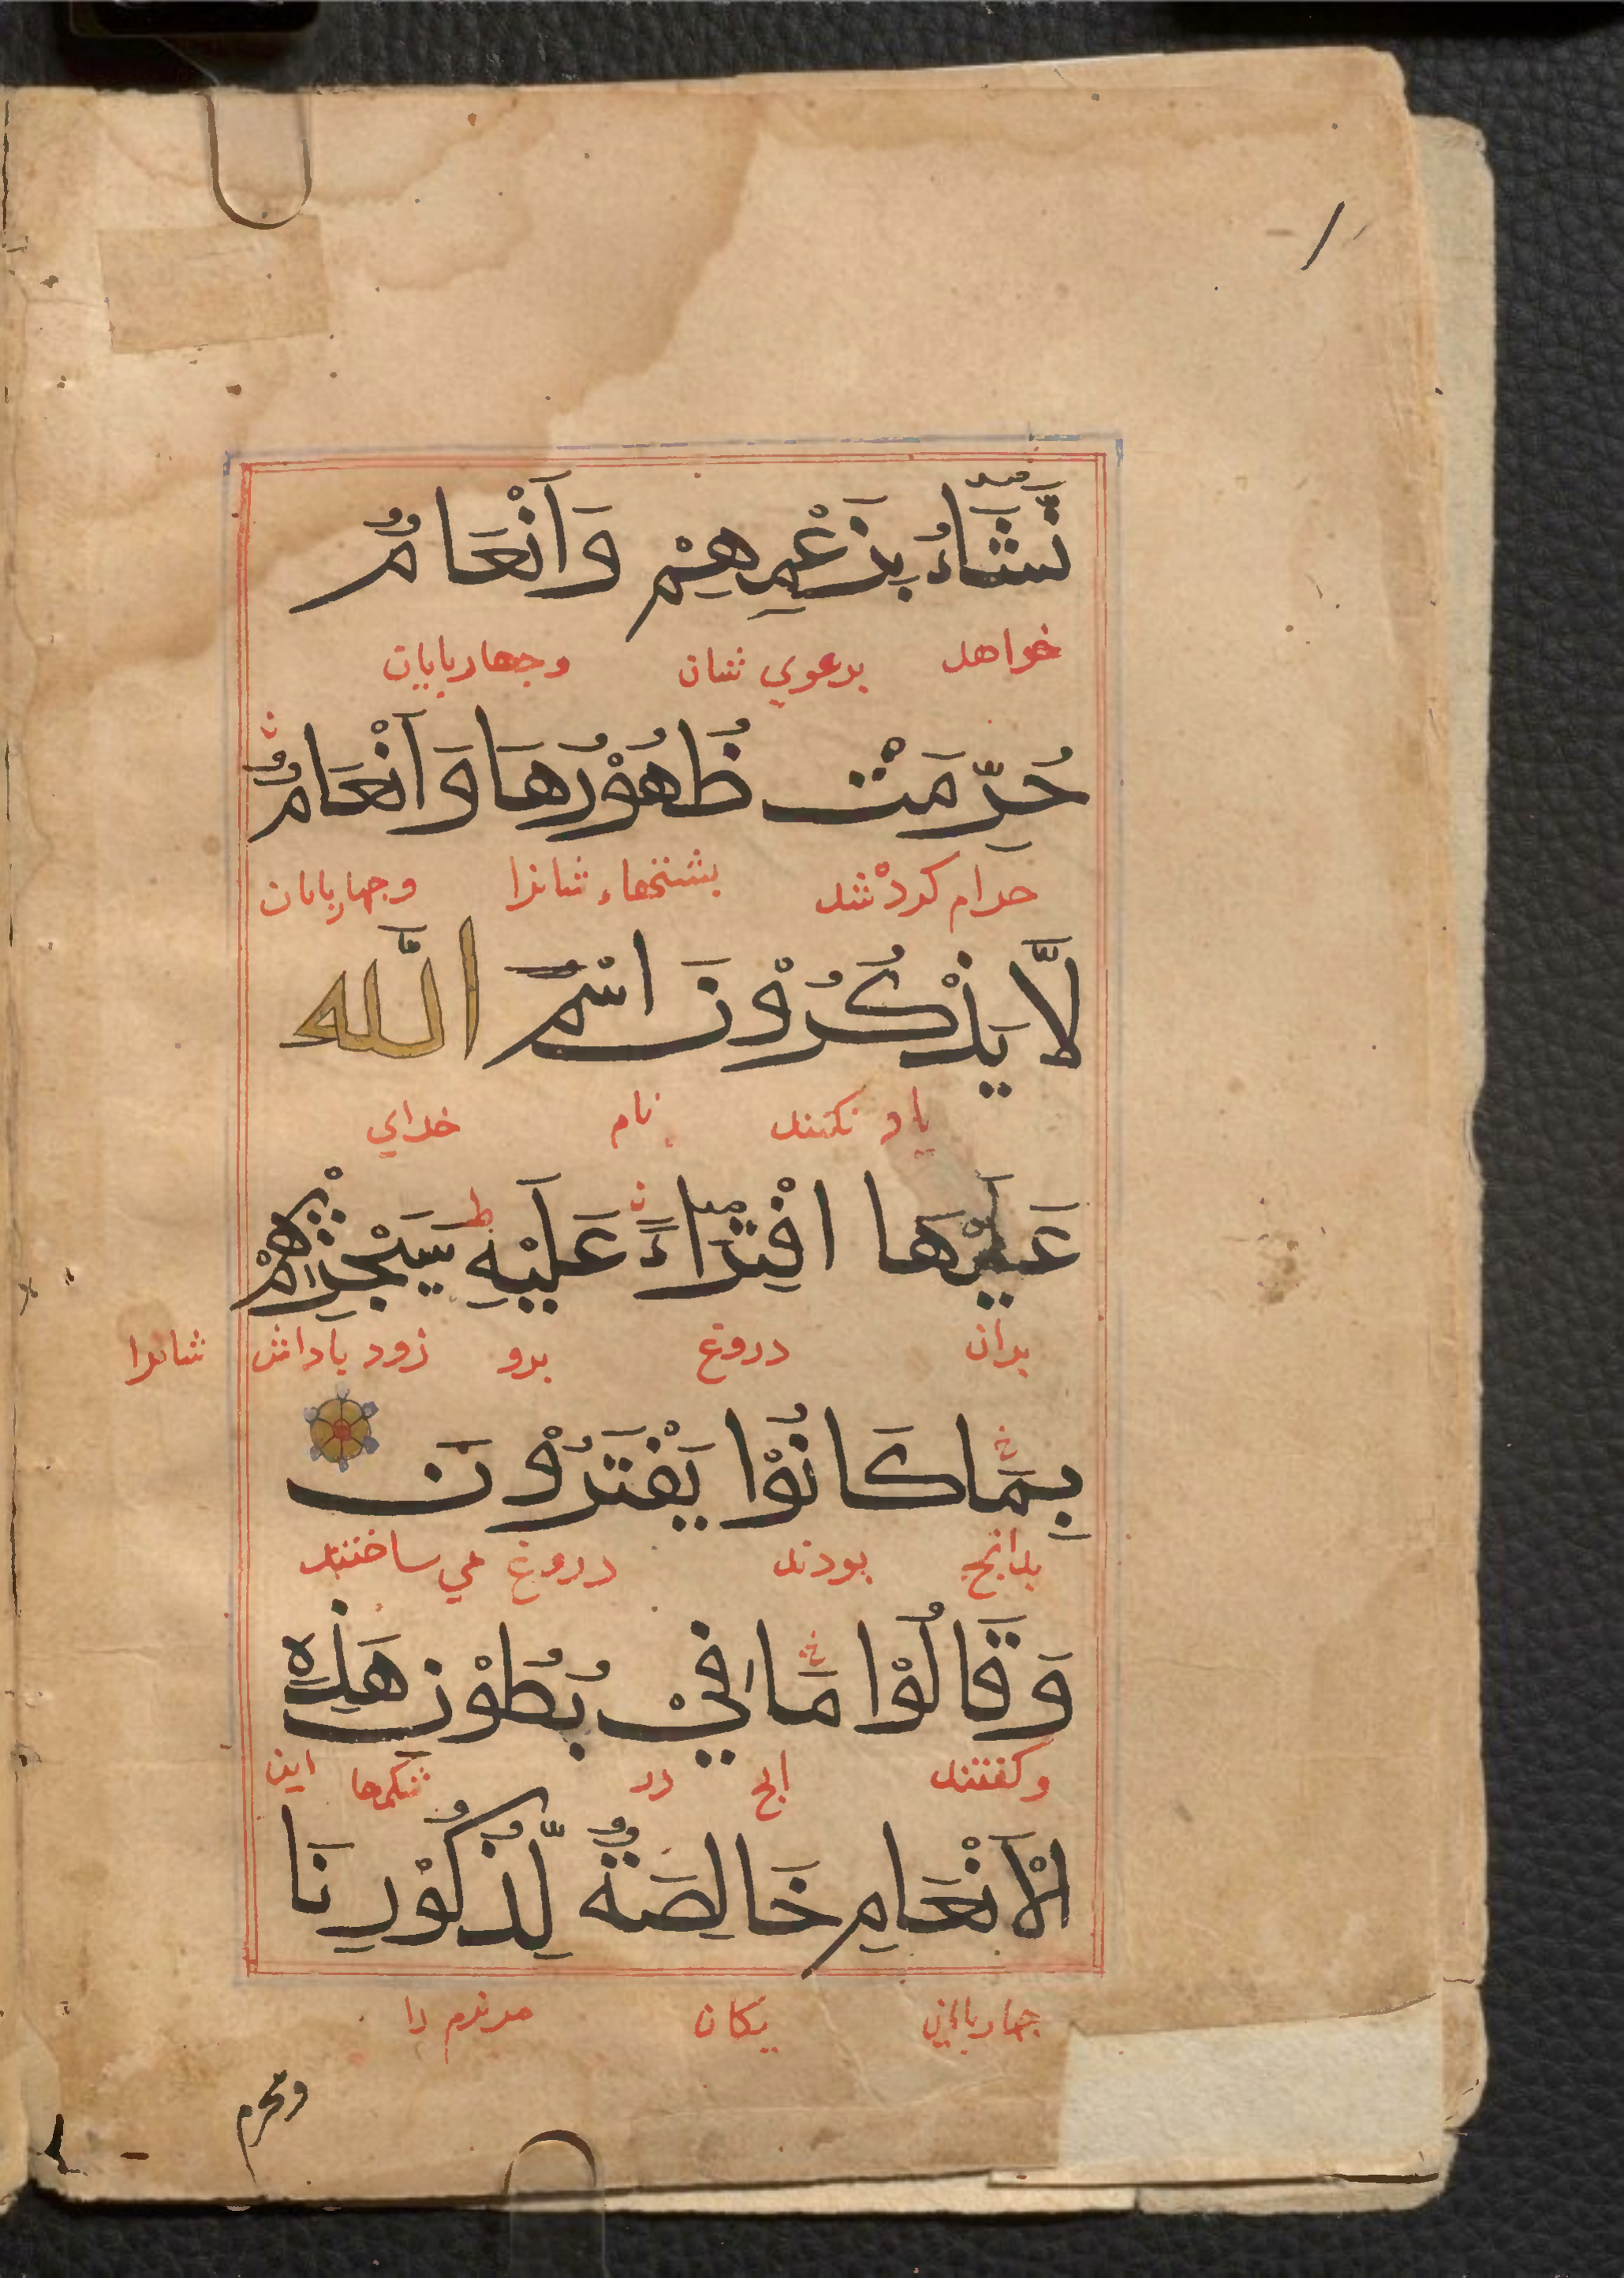 نَّشَاءُ بِزَعْمِهِمْ وَاَنْعَامٌ
خواهد برعوي شان وجهاربايان
حُرِّمَتْ ظُهُوْرُهَا وَاَنْعَامٌ
حرام كرده شد بشتهاء شانرا وجهاربايان
لَّا يَذْكُرُوْنَ اسْمَ اللّٰه
ياد نكنند نام خداي
عَلَيْهَا افْتِرَاءً عَلَيْهِ ط سَيَجْزِيْهِمْ
بران دروغ برو زود باداش شانرا
بِمَا كَانُوْا يَفْتَرُوْنَ
بدانج بودند دروغ مي ساختند
وَقَالُوْا مَا فِيْ بُطُوْنِ هٰذِهِ
وكفتند انج در شكمها اين
الْاَنْعَامِ خَالِصَةٌ لِّذُكُوْرِنَا
جهاربايان يكان مردم را
ومحرم